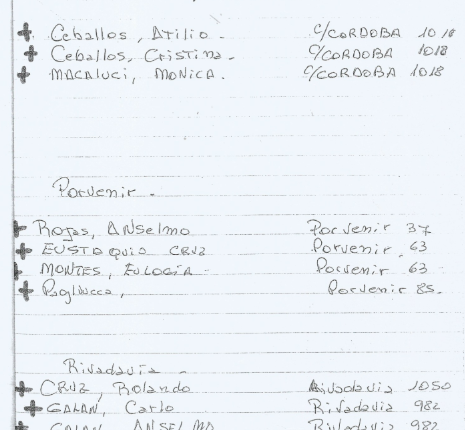 + Ceballos, Atilio - C/CORDOBA 1018
+ Ceballos, Cristina. C/CORDOBA 1018
+ MACALUCI, MONICA. C/CORDOBA 1018
Porvenir -
+ Rojas, Anselmo Porvenir 37
+ EUSTAQUIO CRUZ Porvenir. 63
+ MONTES, EULOGIA - Porvenir 63
+ Pagliucca, Porvenir 85.
Rivadavia -
+ CRUZ, Rolando Rivadavia 1050
+ GALAN, Carlo Rivadavia 982
+ GALAN, ANSELMA Rivadavia 982